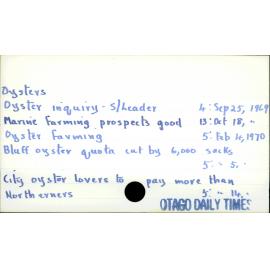 Oysters
Oyster inquiry - S/Leader 4: Sep 25, 1969
Marine farming prospects good 13: Oct 18, "
Oyster farming 5: Feb 4, 1970
Bluff oyster quota cut by 6,000 sacks
5: " 5. "
City oyster lovers to pay more than
Northerners 5: " 14. "
OTAGO DAILY TIMES